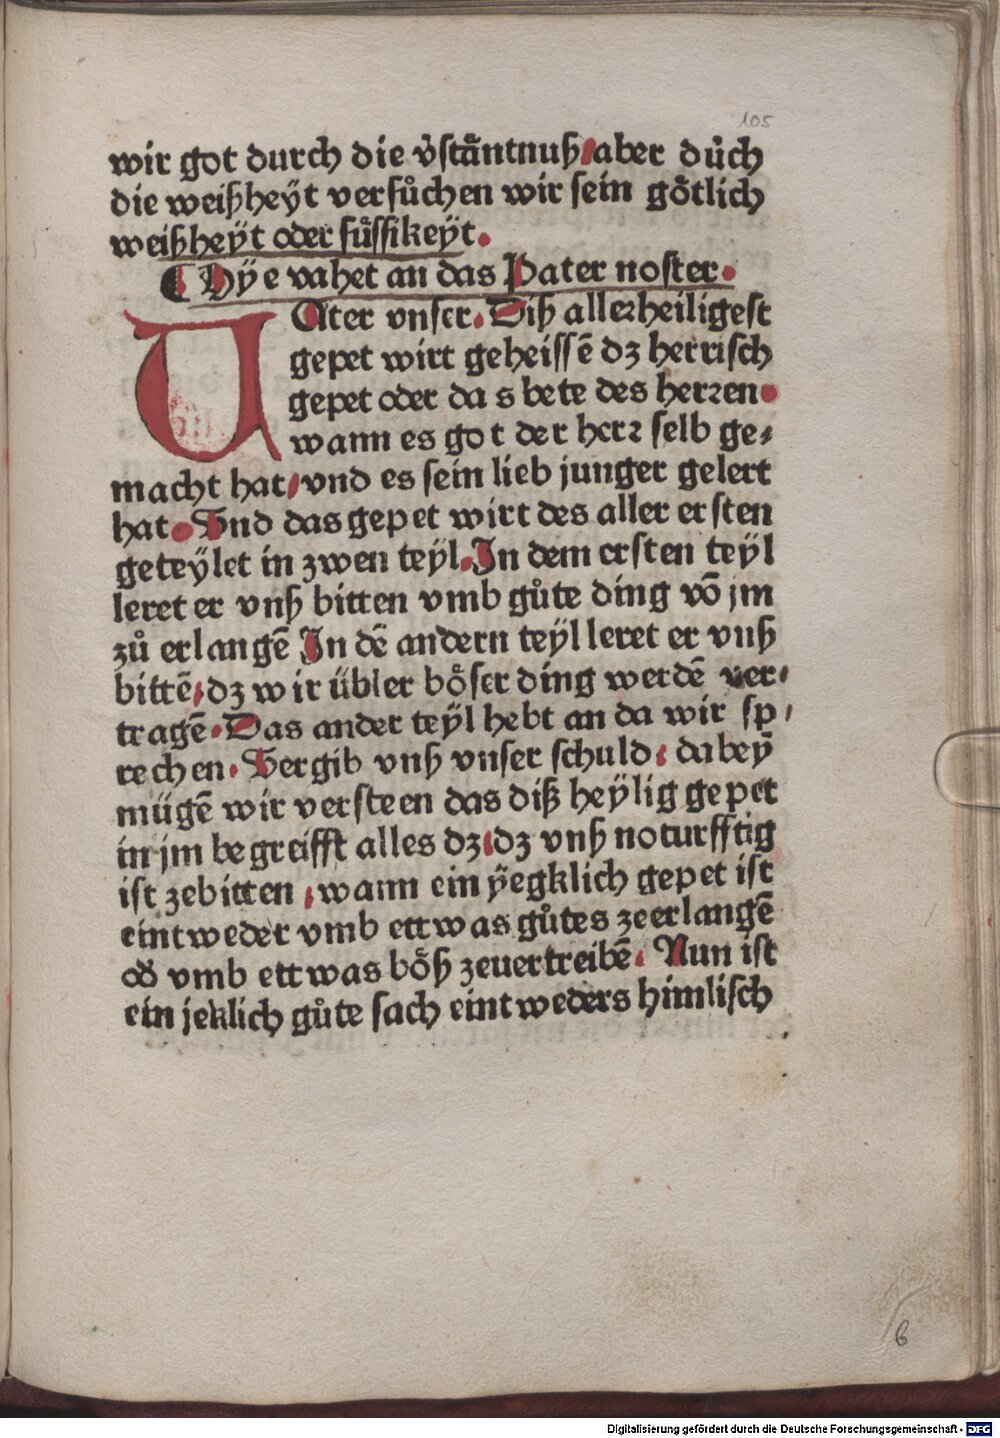 105
wir got durch die v̉stãntnuß/aber dủch
die weißheÿt versůchen wir sein gȫtlich
weißheÿt oder süssikeÿt.
¶ Hÿe vahet an das Pater noster.
VAter vnser. Diß allerheiligest
gepet wirt geheissē dz herrisch
gepet oder da s bete des herren.
wann es got der herr selb ge⸗
macht hat/vnd es sein lieb junger gelert
hat. Vnd das gepet wirt des aller ersten
geteÿlet in zwen teÿl. In dem ersten teÿl
leret er vnß bitten vmb gůte ding võ jm
zů erlangē In dē andern teÿl leret er vnß
bittē/dz wir übler bȫser ding werdē ver⸗
tragē. Das ander teÿl hebt an da wir sp⸗
rechen. Vergib vnß vnser schuld: dabeÿ
mügē wir versteen das diß heÿlig gepet
in jm begreifft alles dz/dz vnß noturfftig
ist zebitten/wann ein ÿegklich gepet ist
eintweder vmb ettwas gůtes zeerlangē
oď vmb ettwas bȫß zeuertreibē. Nun ist
ein jeklich gůte sach eintweders himlisch
6
Digitalisierung gefördert durch die Deutsche Forschungsgemeinschaft - DFG